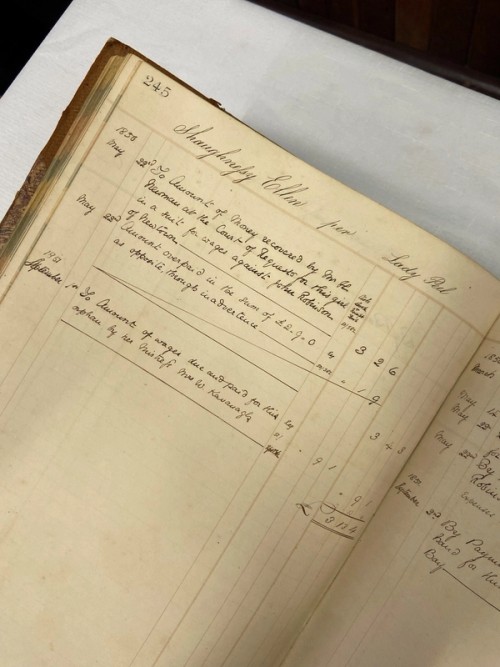 245
Shaughnessy Ellen per Lady Peel
1850
May 22nd To Amount of Money recovered by Mr
Newman at the Court of Requests for this girl
in a suit for wages against John Robinson
of Newtown 3 2 6
May 22nd Amount overpaid in the sum of £2.9.0
as opposite, through inadvertence 1 9
3 4 3
1851
September To Amount of wages due and paid for this
orphan by her Mistress Mrs W. Kavanagh 9 1
9 1
£ 3 13 4
May
May 22
May 22nd By
1851
September 2nd By Paym
Bay